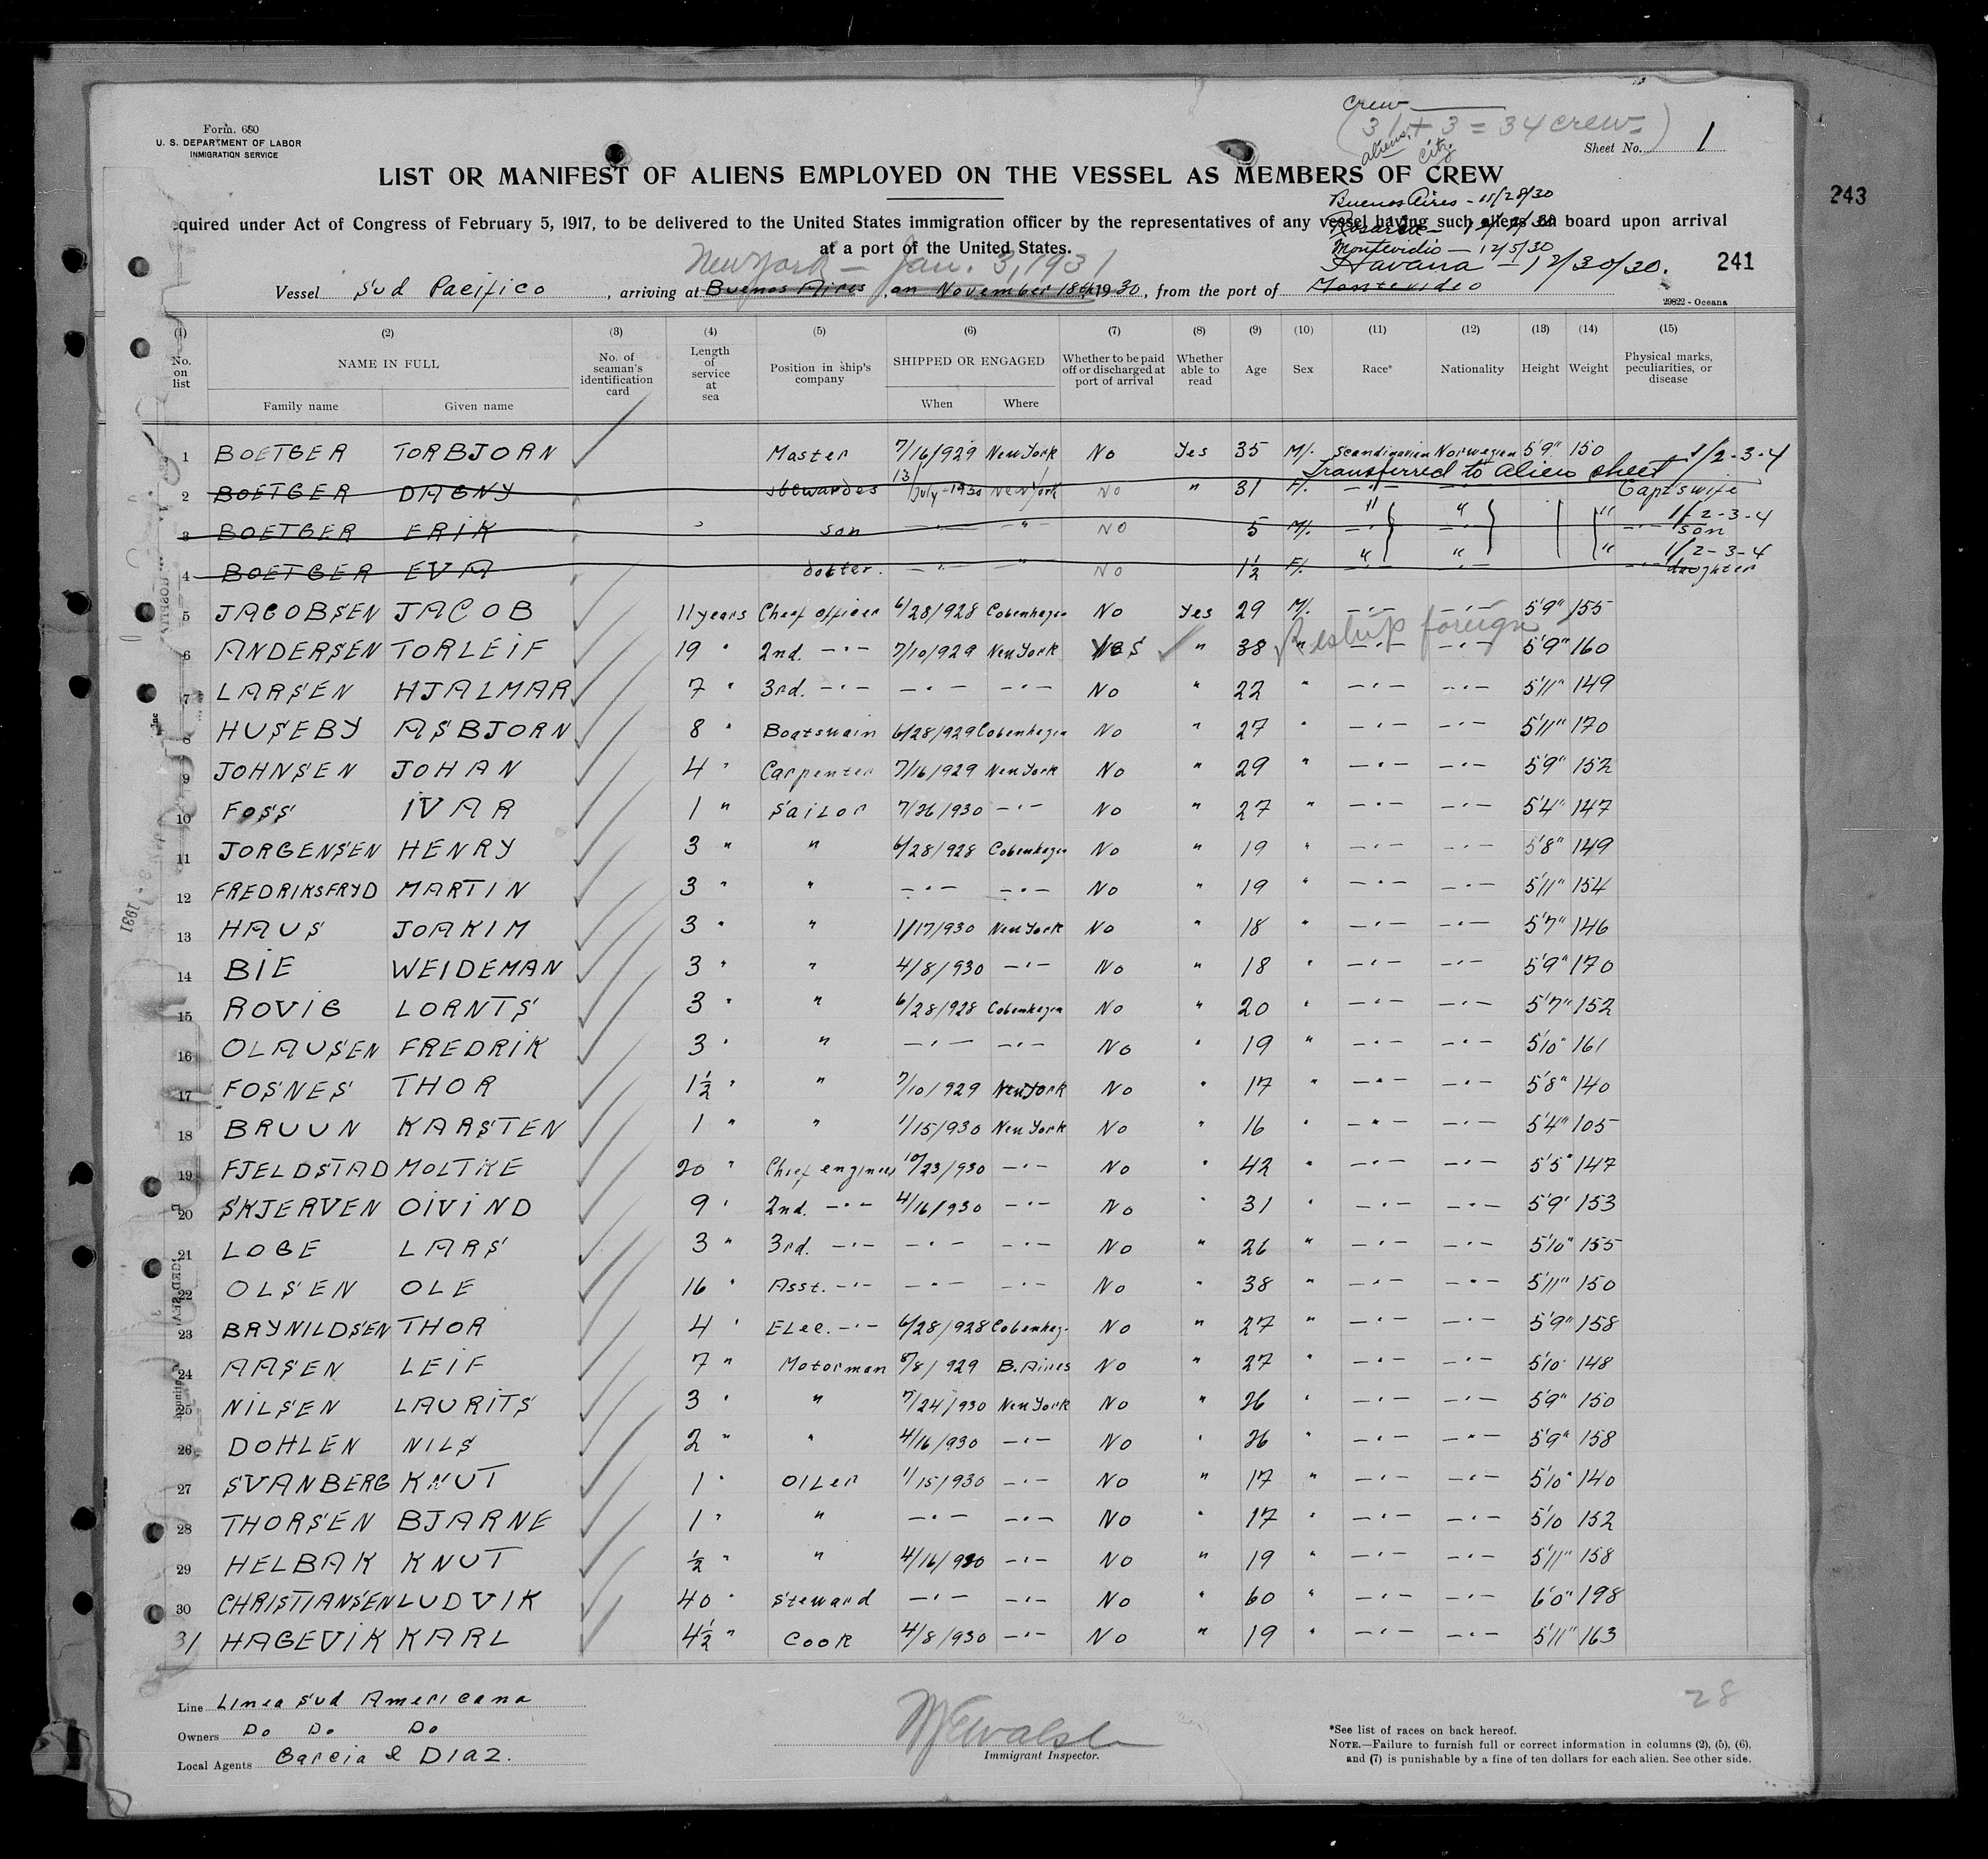 Crew
(31 + 3 = 34 crew=)
aliens. City.
Form. 680
U. S. DEPARTMENT OF LABOR
INMIGRATION SERVICE
Sheet No. 1
LIST OR MANIFEST OF ALIENS EMPLOYED ON THE VESSEL AS MEMBERS OF CREW
243
Buenos Aires - 11/28/30
equired under Act of Congress of February 5, 1917, to be delivered to the United States immigration officer by the representatives of any vessel having such aliens on board upon arrival
at a port of the United States.
Montevidio - 12/5/30
New York - Jan. 3, 1931
Havana - 12/30/30.
241
Vessel Sud Pacifico, arriving at Buenos Aires, on November 18th 1930, from the port of Montevideo
29822 - Oceana
(1) (2) (3) (4) (5) (6) (7) (8) (9) (10) (11) (12) (13) (14) (15)
No. on list NAME IN FULL No. of seaman's identification card Length of service at sea Position in ship's company SHIPPED OR ENGAGED Whether to be paid off or discharged at port of arrival Whether able to read Age Sex Race* Nationality Height Weight Physical marks, peculiarities, or disease
Family name Given name When Where
1 BOETGER TORBJORN Master 7/16/929 New York No Yes 35 M/. Scandinavian Norwegian 5'9" 150 1/2-3-4
Transferred to alien sheet
2 BOETGER DAGNY stewardes 13/July-1930 New York No " 31 F/. -"- -"- Capt's wife
3 BOETGER ERIK son -"- -"- No 5 M/. -"- -"- " 1/2-3-4 son
4 BOETGER EVA dotter. -"- -"- No 1½ F/. -"- -"- " 1/2-3-4 daughter
5 JACOBSEN JACOB 11 years Cheef officer 6/28/928 Cobenhagen No Yes 29 M/. -"- -"- 5'9" 155
Reship foreign
6 ANDERSEN TORLEIF 19 " 2nd. -"- 7/10/929 New York Yes " 38 " -"- -"- 5'9" 160
7 LARSEN HJALMAR 7 " 3rd. -"- -"- -"- No " 22 " -"- -"- 5'11" 149
8 HUSEBY ASBJORN 8 " Boatswain 6/28/929 Cobenhagen No " 27 " -"- -"- 5'11" 170
9 JOHNSEN JOHAN 4 " Carpenter 7/16/929 New York No " 29 " -"- -"- 5'9" 152
10 FOSS IVAR 1 " Sailor 7/26/930 -"- No " 27 " -"- -"- 5'4" 147
11 JORGENSEN HENRY 3 " " 6/28/928 Cobenhagen No " 19 " -"- -"- 5'8" 149
12 FREDRIKSFRYD MARTIN 3 " " -"- -"- No " 19 " -"- -"- 5'11" 154
13 HAUS JOAKIM 3 " " 1/17/930 New York No " 18 " -"- -"- 5'7" 146
14 BIE WEIDEMAN 3 " " 4/8/930 -"- No " 18 " -"- -"- 5'9" 170
15 ROVIG LORNTS 3 " " 6/28/928 Cobenhagen No " 20 " -"- -"- 5'7" 152
16 OLAUSEN FREDRIK 3 " " -"- -"- No " 19 " -"- -"- 5'10" 161
17 FOSNES THOR 1½ " " 7/10/929 New York No " 17 " -"- -"- 5'8" 140
18 BRUUN KARSTEN 1 " " 1/15/930 New York No " 16 " -"- -"- 5'4" 105
19 FJELDSTAD MOLTKE 20 " Chief engineer 10/23/930 -"- No " 42 " -"- -"- 5'5" 147
20 SKJERVEN OIVIND 9 " 2nd. -"- 4/16/930 -"- No " 31 " -"- -"- 5'9" 153
21 LOGE LARS 3 " 3rd. -"- -"- -"- No " 26 " -"- -"- 5'10" 155
22 OLSEN OLE 16 " Asst. -"- -"- -"- No " 38 " -"- -"- 5'11" 150
23 BRYNILDSEN THOR 4 " Elec. -"- 6/28/928 Cobenhag. No " 27 " -"- -"- 5'9" 158
24 AASEN LEIF 7 " Motorman 8/8/929 B. Aires No " 27 " -"- -"- 5'10" 148
25 NILSEN LAURITS 3 " " 7/24/930 New York No " 26 " -"- -"- 5'9" 150
26 DOHLEN NILS 2 " " 4/16/930 -"- No " 26 " -"- -"- 5'9" 158
27 SVANBERG KNUT 1 " Oiler 1/15/930 -"- No " 17 " -"- -"- 5'10" 140
28 THORSEN BJARNE 1 " " -"- -"- No " 17 " -"- -"- 5'10 152
29 HELBAK KNUT ½ " " 4/16/930 -"- No " 19 " -"- -"- 5'11" 158
30 CHRISTIANSEN LUDVIK 40 " Steward -"- -"- No " 60 " -"- -"- 6'0" 198
31 HAGEVIK KARL 4½ " Cook 4/8/930 -"- No " 19 " -"- -"- 5'11" 163
28
Line Linea Sud Americana
Owners Do Do Do
Local Agents Garcia & Diaz.
Immigrant Inspector.
*See list of races on back hereof.
NOTE.—Failure to furnish full or correct information in columns (2), (5), (6),
and (7) is punishable by a fine of ten dollars for each alien. See other side.